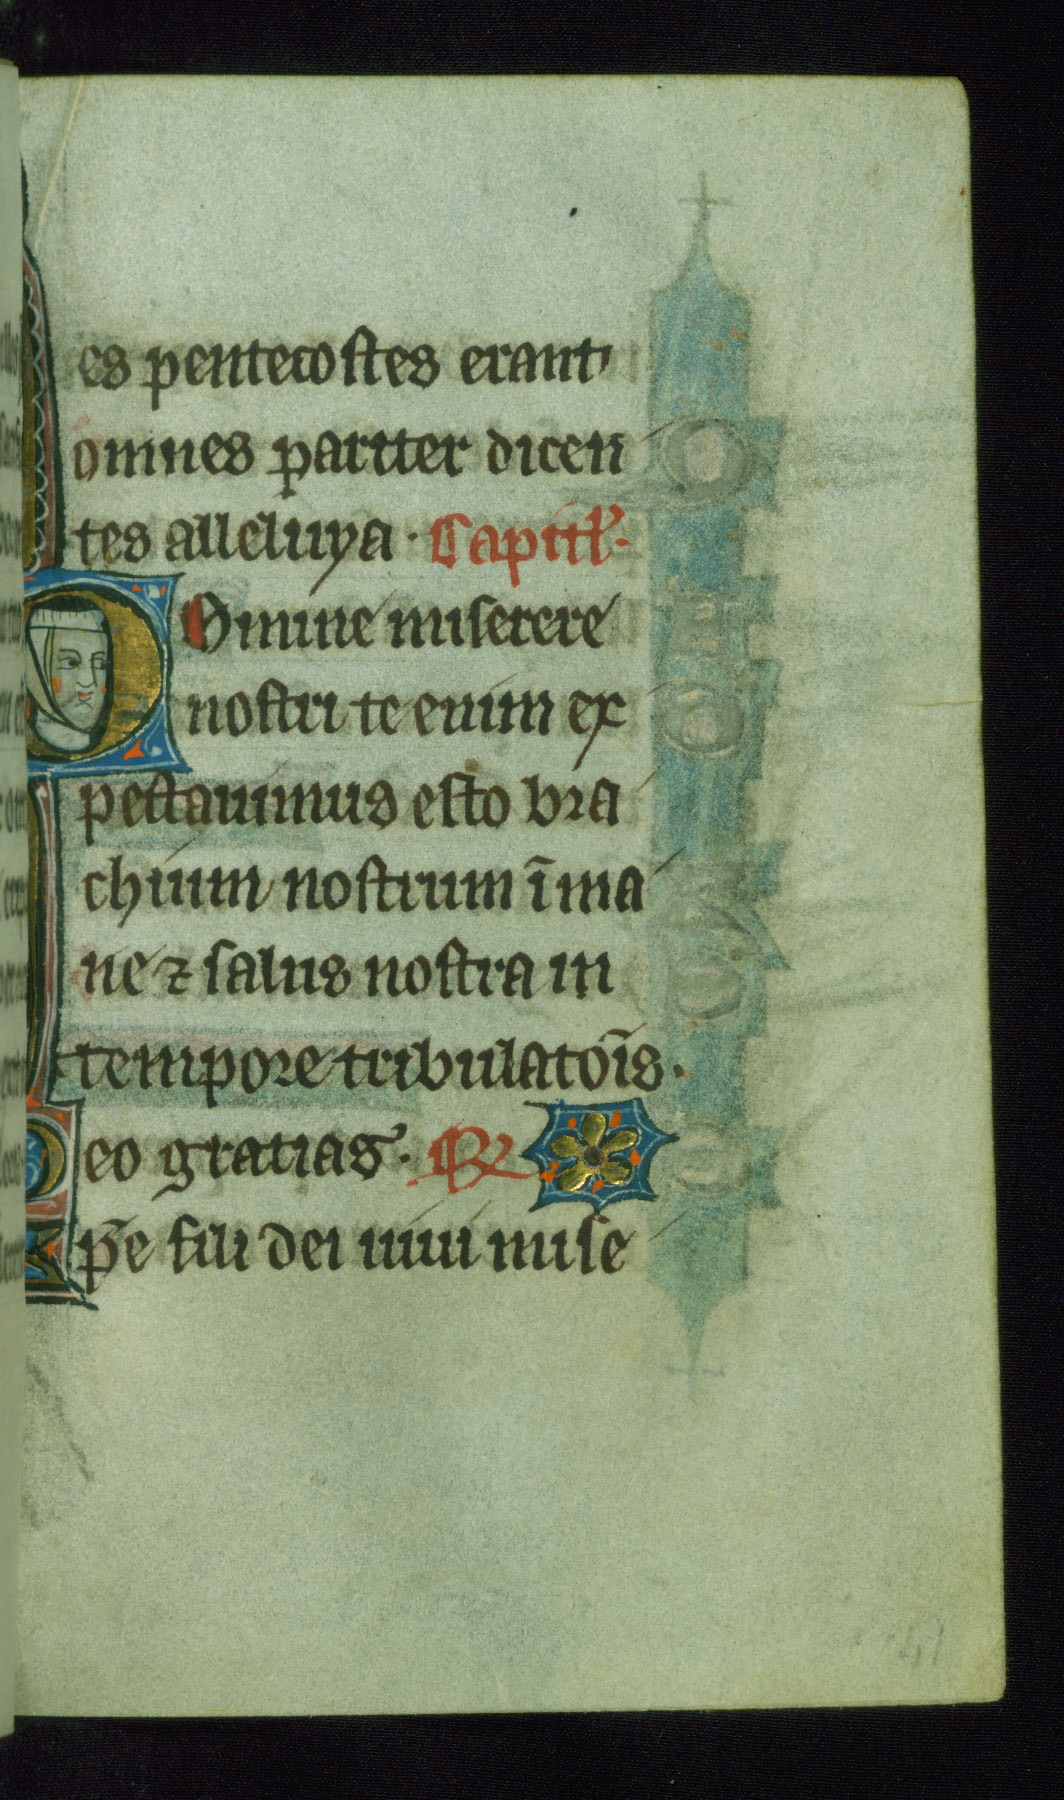 es pentecostes erant
omnes pariter dicen
tes alleluya · Capitl'·
Domine miserere
nostri te enim ex
pectauimus esto bra
chium nostrum ī ma
ne ⁊ salus nostra in
tempore tribulatōis ·
Deo gratias · R
xp̄e fili dei uiui mise